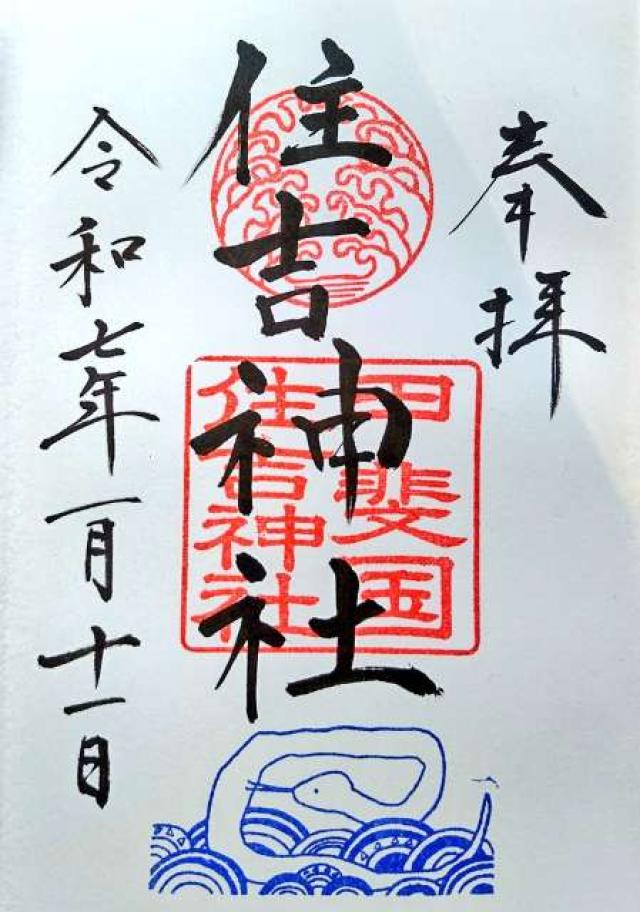 奉拝
住吉神社
甲斐国
住吉神社
令和七年一月十一日